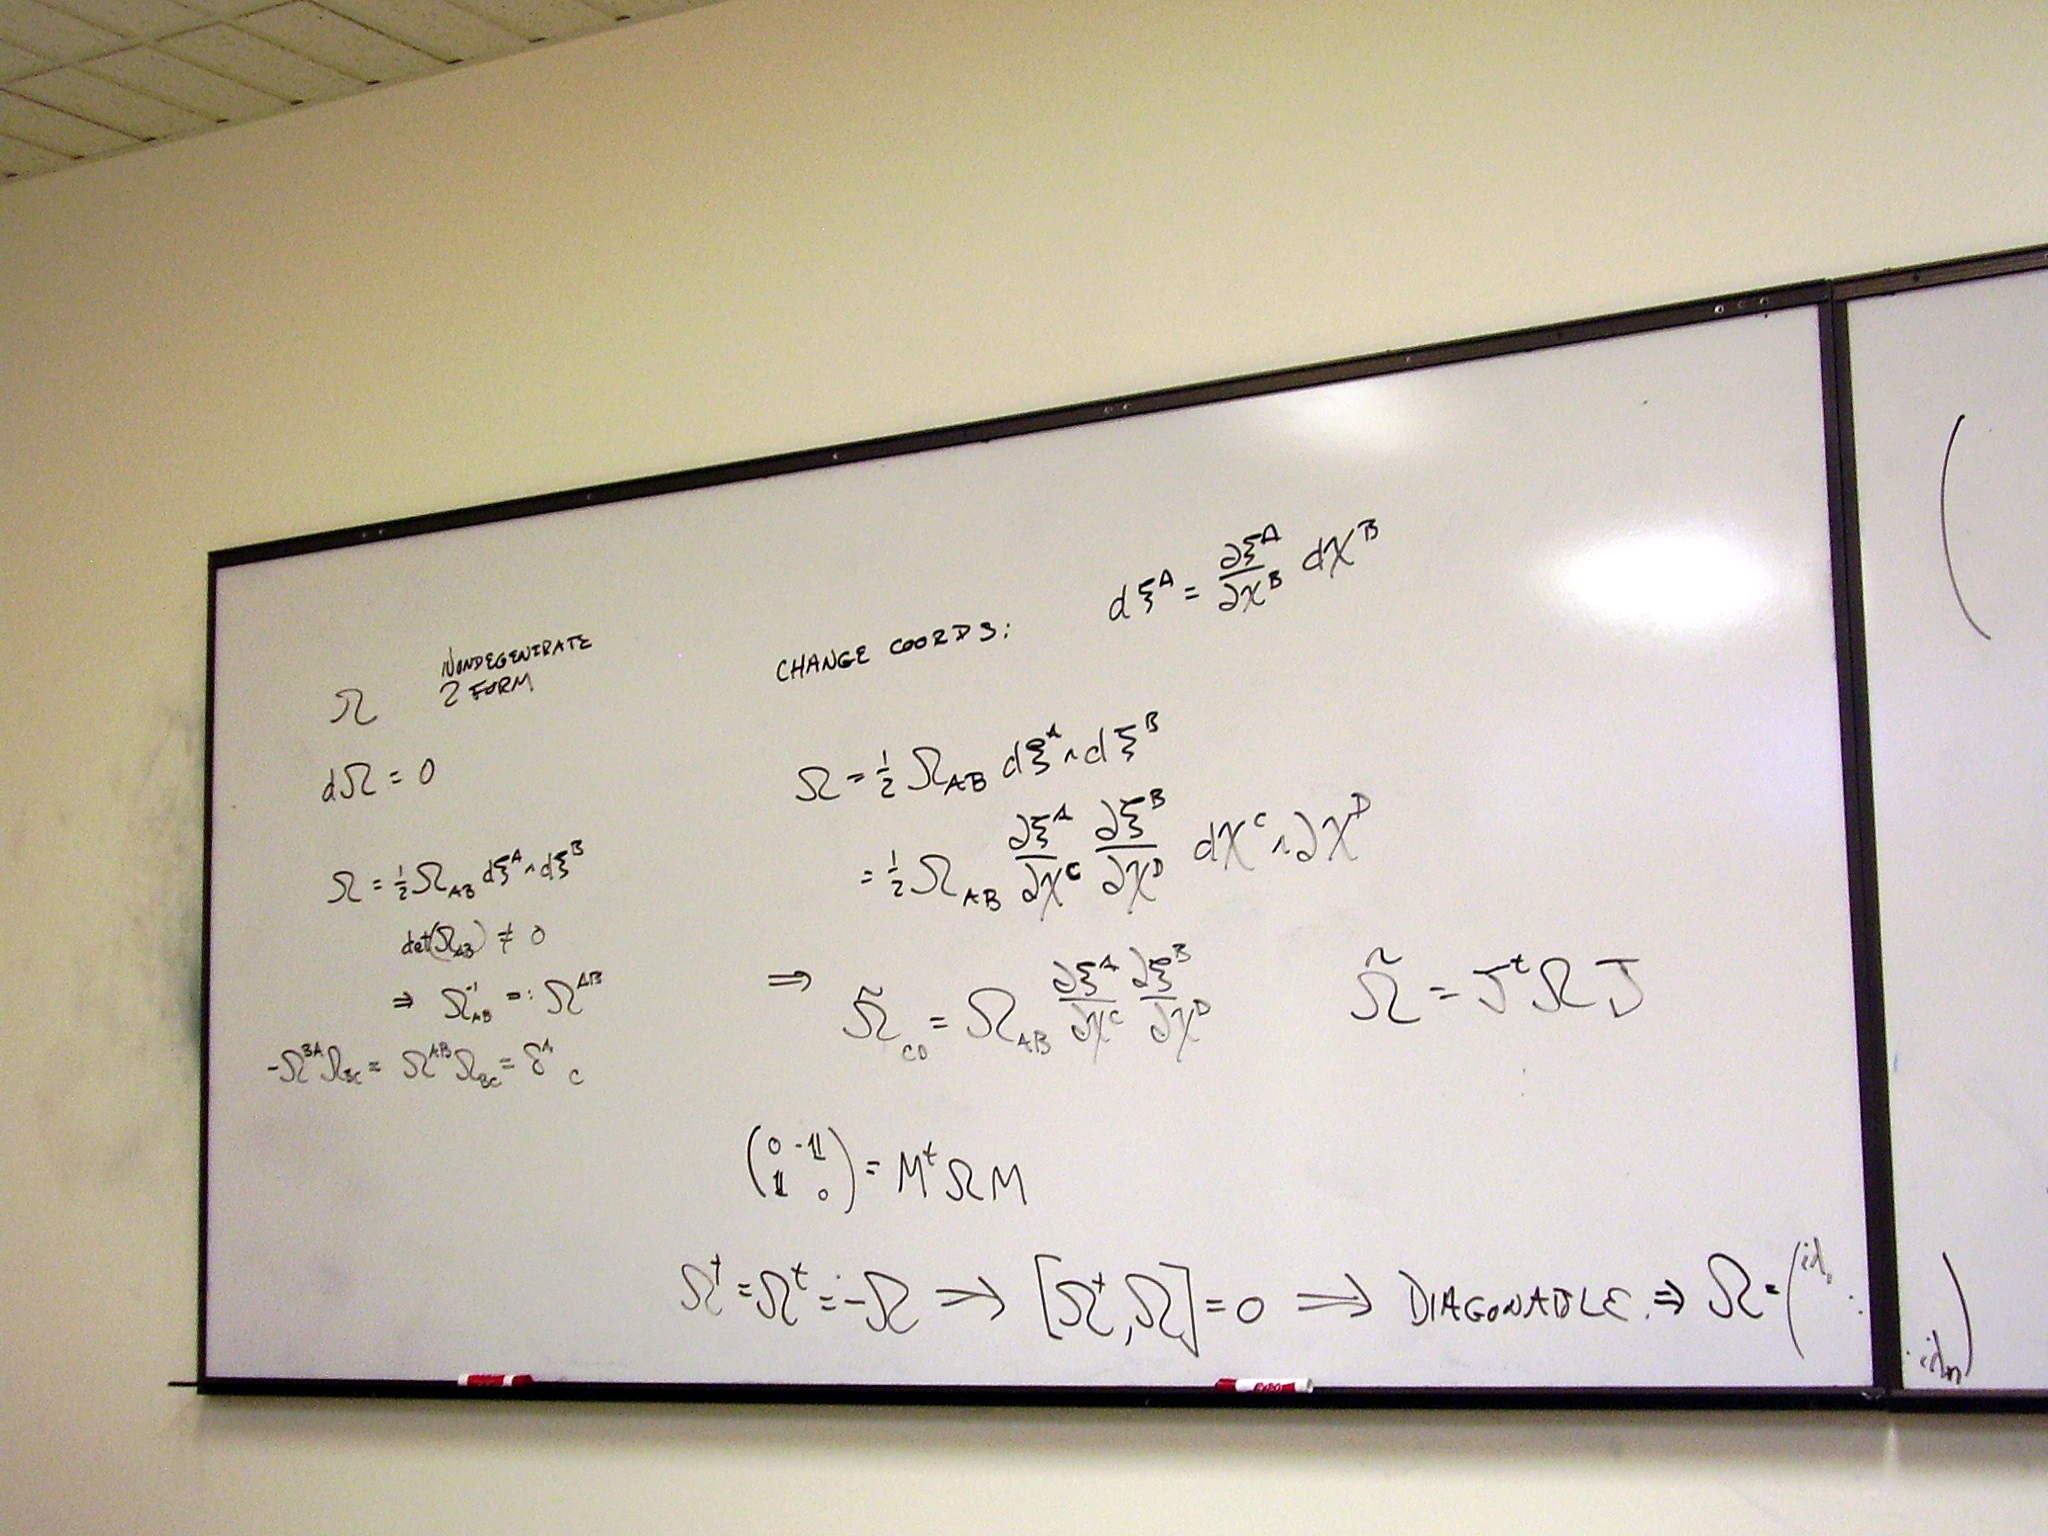 Ω NONDEGENERATE
2 FORM
dΩ = 0
Ω = ½ Ω_AB dξ^A ∧ dξ^B
det(Ω_AB) ≠ 0
⇒ Ω^-1_AB =: Ω^AB
-Ω^BA Ω_BC = Ω^AB Ω_BC = δ^A_C
CHANGE COORDS: dξ^A = ∂ξ^A/∂χ^B dχ^B
Ω = ½ Ω_AB dξ^A ∧ dξ^B
= ½ Ω_AB ∂ξ^A/∂χ^C ∂ξ^B/∂χ^D dχ^C ∧ ∂χ^D
⇒ Ω̃_CD = Ω_AB ∂ξ^A/∂χ^C ∂ξ^B/∂χ^D Ω̃ = J^t Ω J
(0 -𝟙
𝟙 0) = M^t Ω M
Ω^† = Ω^t = -Ω ⇒ [Ω^†, Ω] = 0 ⇒ DIAGONABLE. ⇒ Ω = (iλ. ⋱ iλn)
(
EXPO